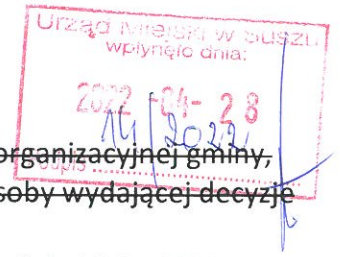 Urząd Miejski w Suszu
wpłynęło dnia:
2022 -04- 28
14/2022
organizacyjnej gminy,
podpis ..........
osoby wydającej decyzje